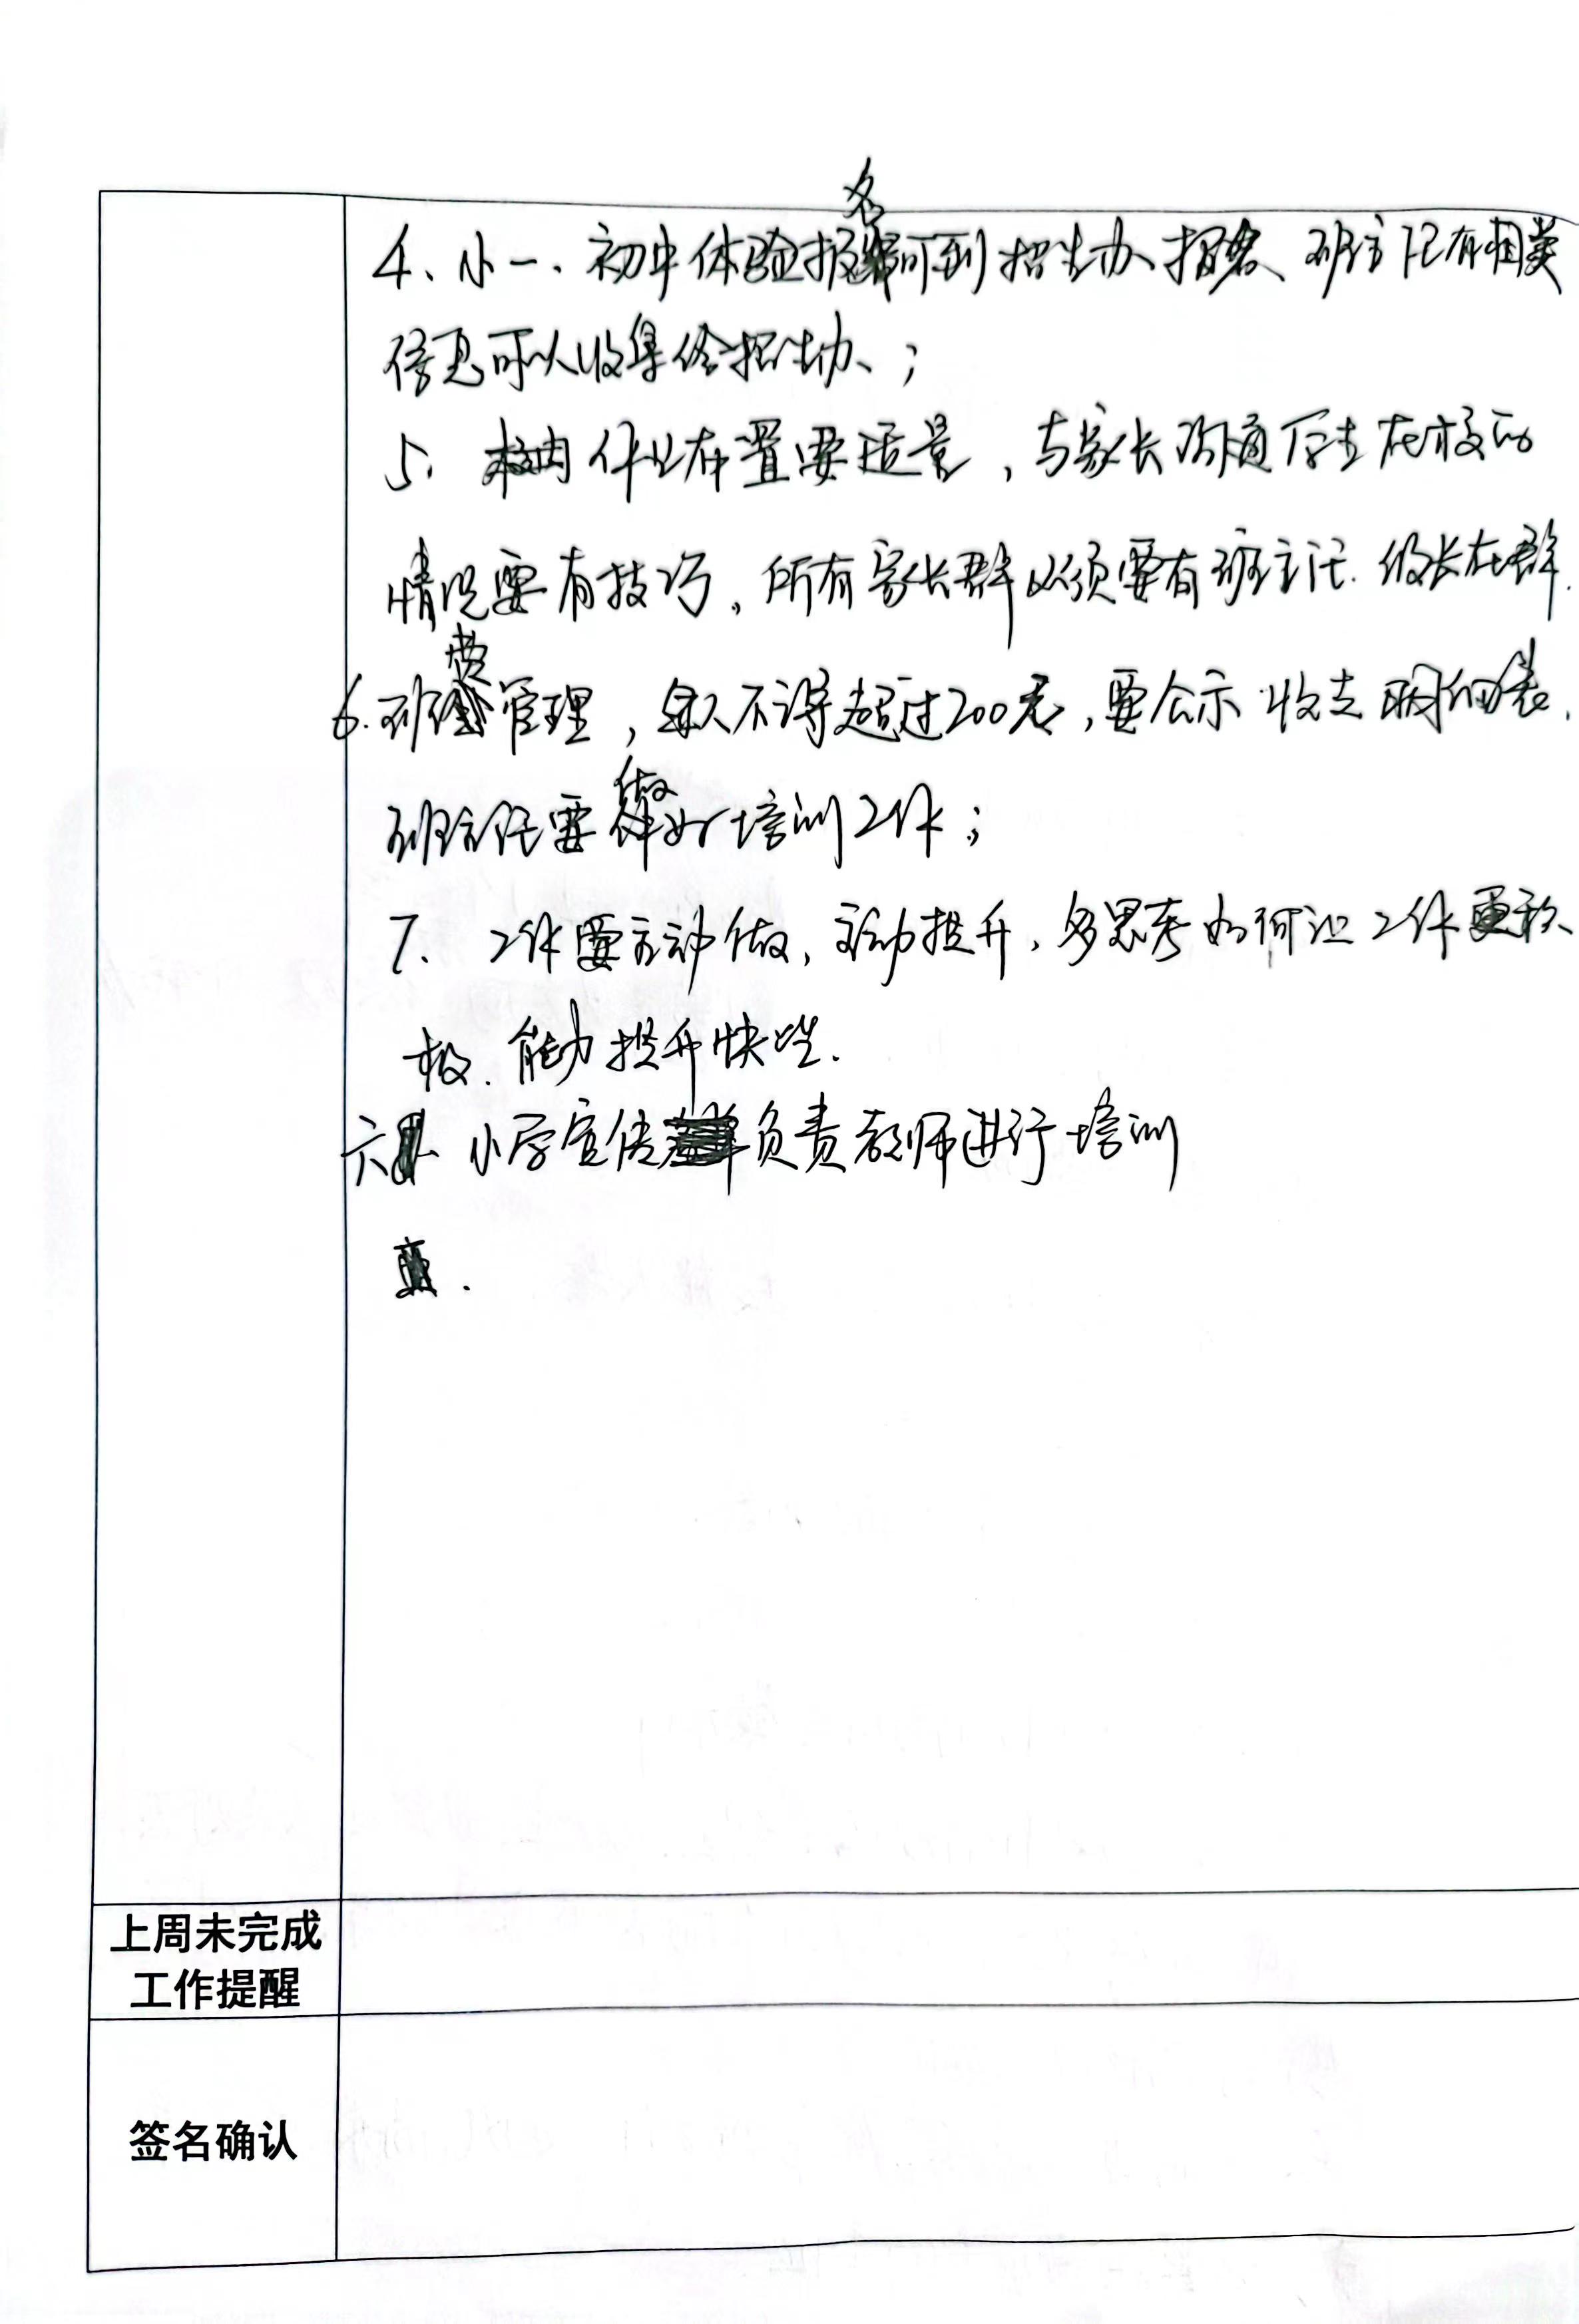 4、小一、初中体验报名可到招生办报名、班主任有相关
信息可以收集给招生办；
5、校内作业布置要适量，与家长沟通学生在校的
情况要有技巧。所有家长群必须要有班主任、级长在群.
6.班费管理，每人不得超过200元，要公示收支明细表.
班主任要做好培训工作；
7、工作要主动做，主动提升，多思考如何让工作更积
极、能力提升快些.
六、小学宣传负责教师进行培训
上周未完成
工作提醒
签名确认